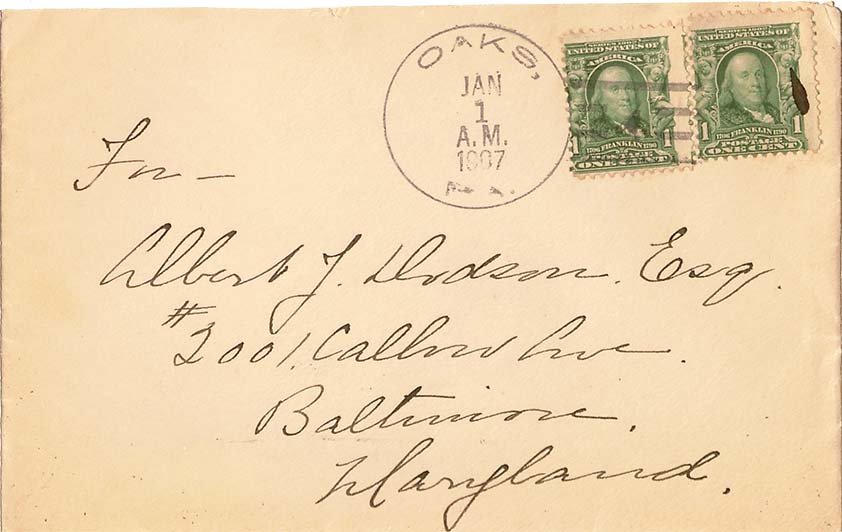 OAKS,
JAN
1
A.M.
1907
SERIES 1902
UNITED STATES OF
AMERICA
1706 FRANKLIN 1790
1 1
POSTAGE
ONE CENT
SERIES 1902
UNITED STATES OF
AMERICA
1706 FRANKLIN 1790
1 1
POSTAGE
ONE CENT
For—
Albert J. Dodson. Esq.
#2001. Callow Ave.
Baltimore.
Maryland.